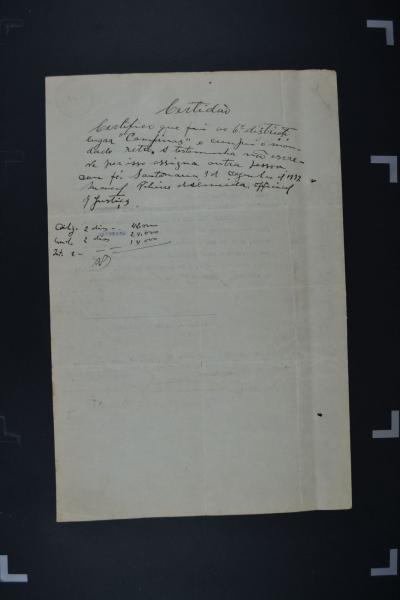 Certidão
Certifico que fui ao 6º districto
lugar "Campinas" e cumpri o man-
dado retro. A testemunha não escre-
ve por isso assigna outra pessoa
dou fé. Santa Maria, 9 de Dezembro d 1932
Manoel Ribeiro d'Almeida, Official
d Justiça.
2 dias -
2 dias 24.000
14.000